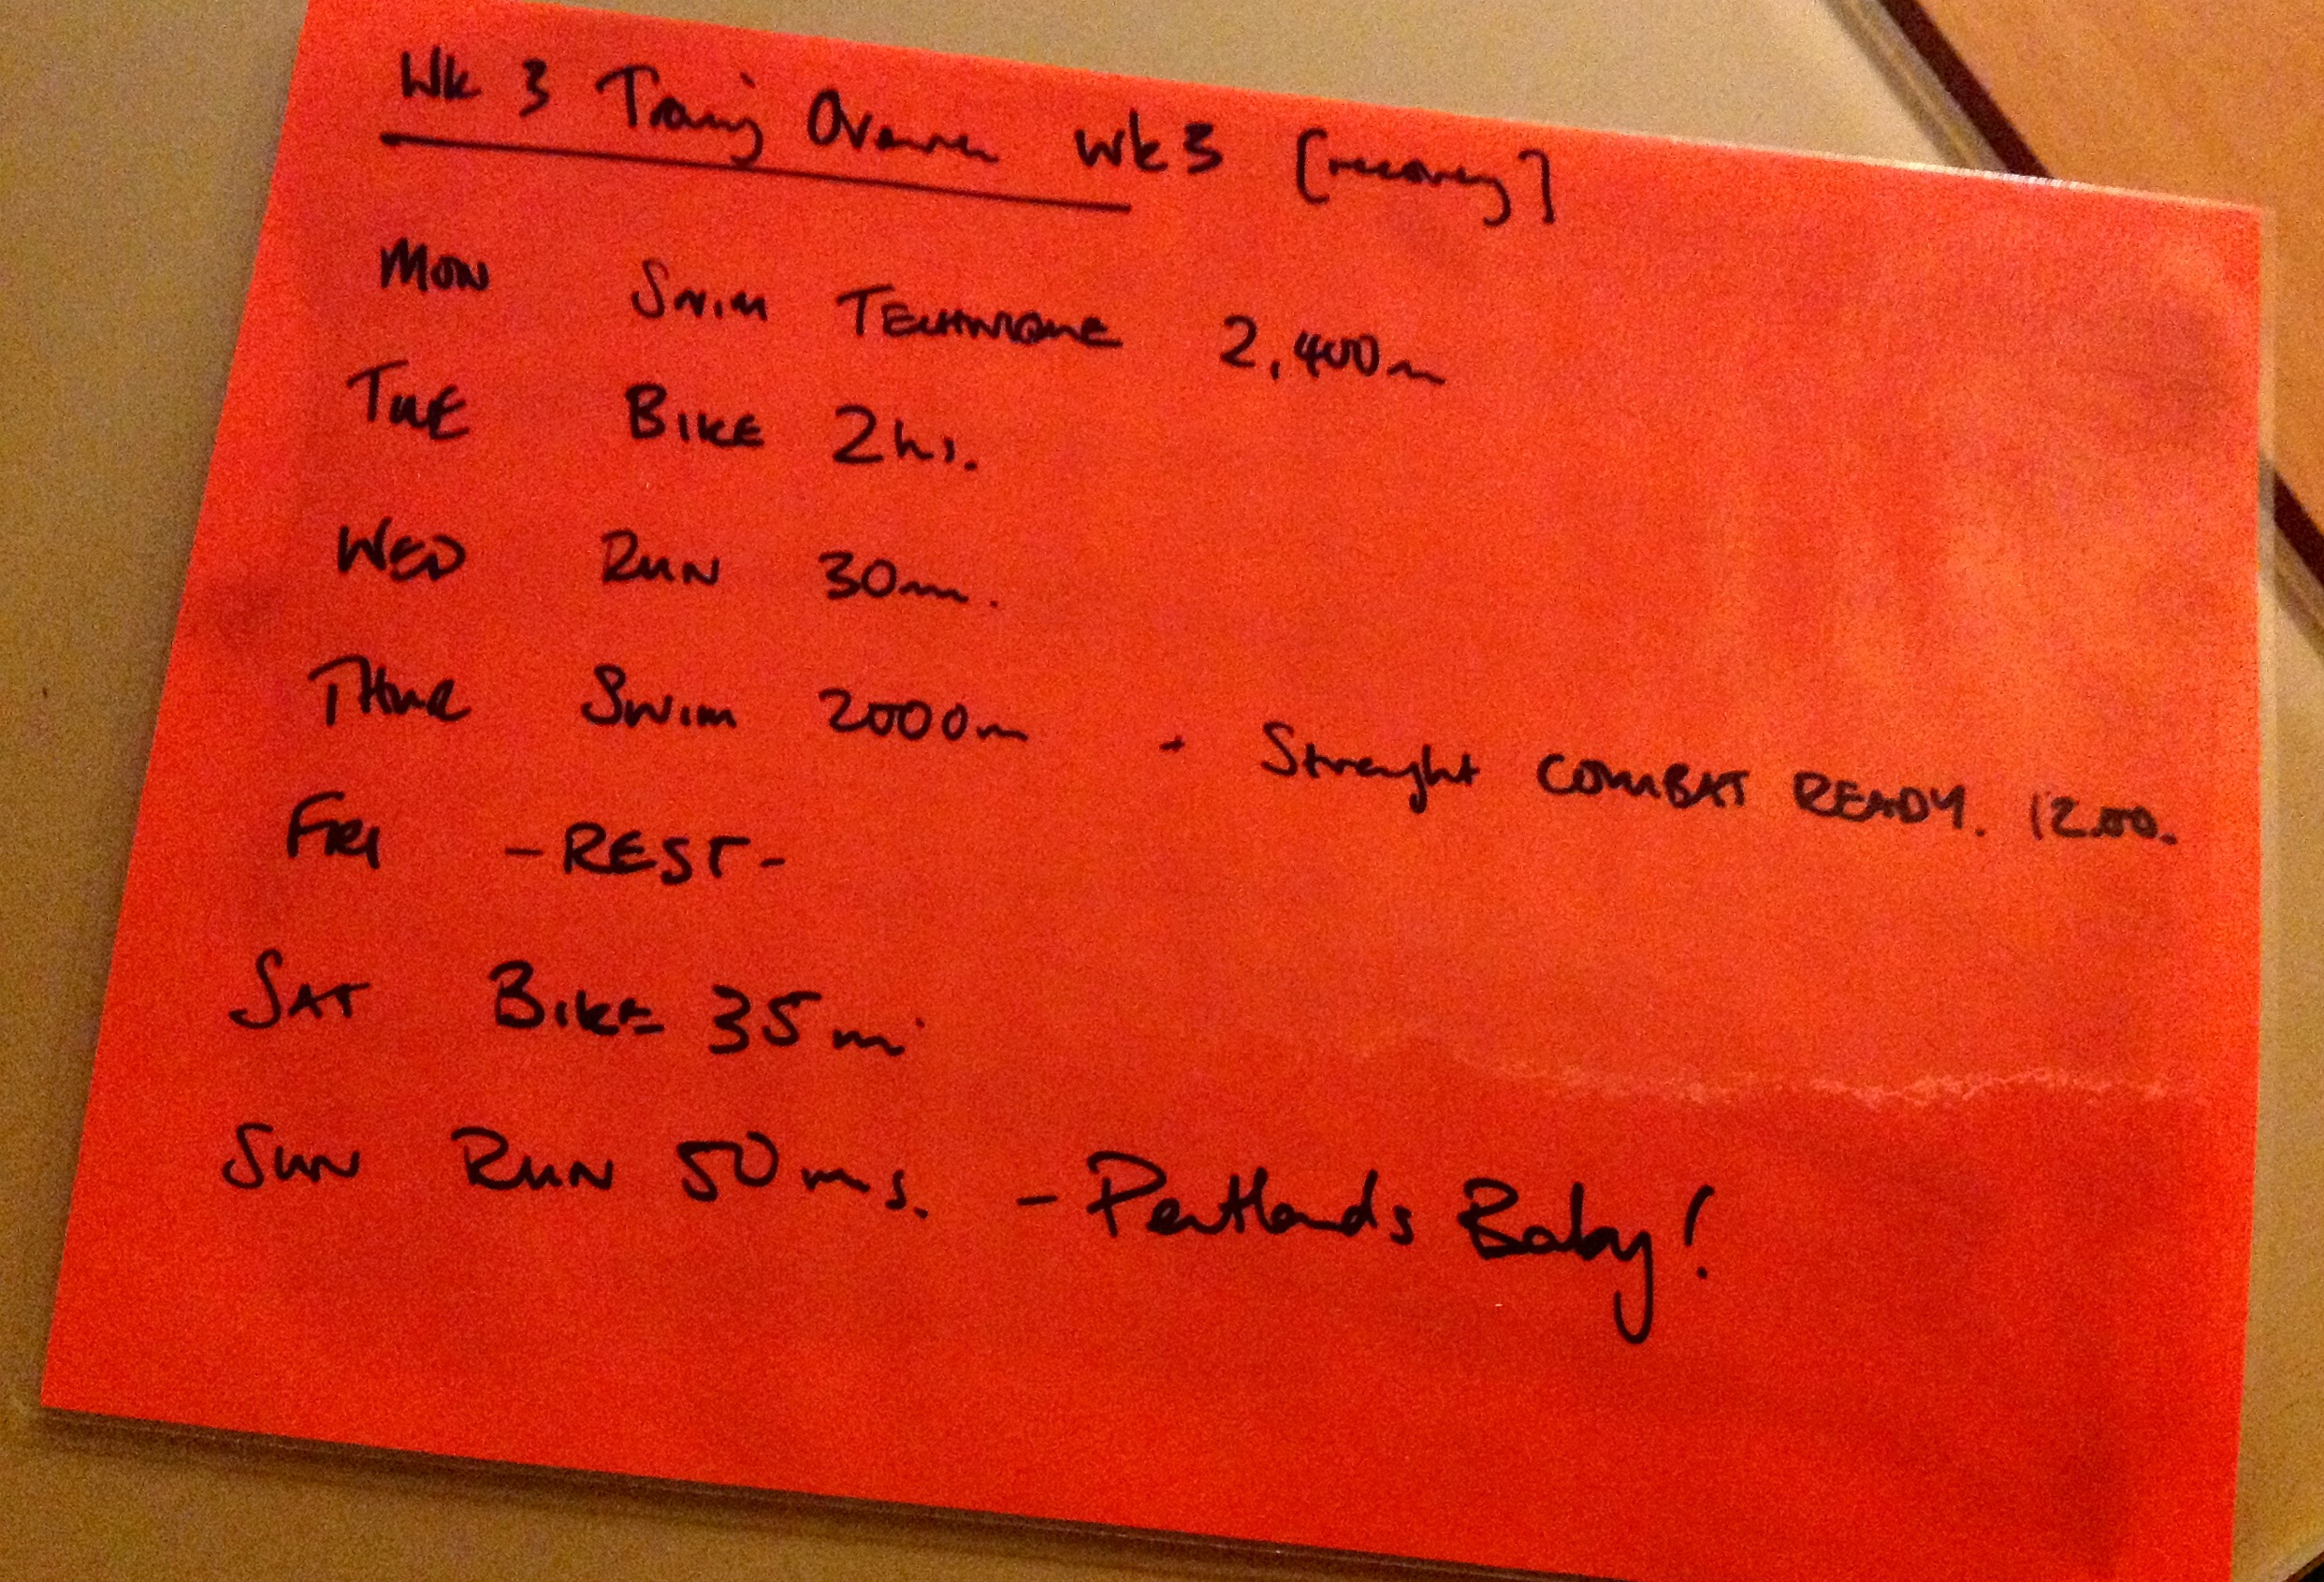 Wk 3 Training Overview Wk 3 [recovery]
MON Swim TECHNIQUE 2,400m
TUE BIKE 2hs.
WED RUN 30m.
THUR SWIM 2000m - Strenght COMBAT READY. 1200.
FRI - REST -
SAT BIKE 35mi
SUN RUN 50ms. - Pentlands Baby!